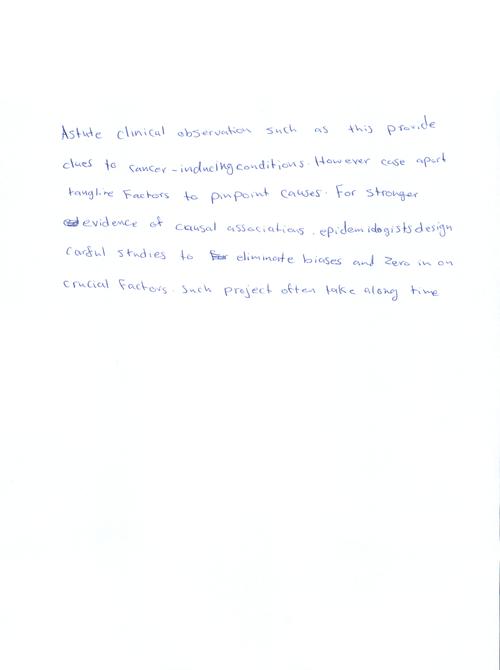 Astute clinical observation such as this provide
clues to cancer-inducing conditions. However case apart
tangline Factors to pinpoint causes. For stronger
evidence of causal associations, epidemidogists design
carful studies to eliminate biases and Zero in on
crucial Factors. Such project often take along time